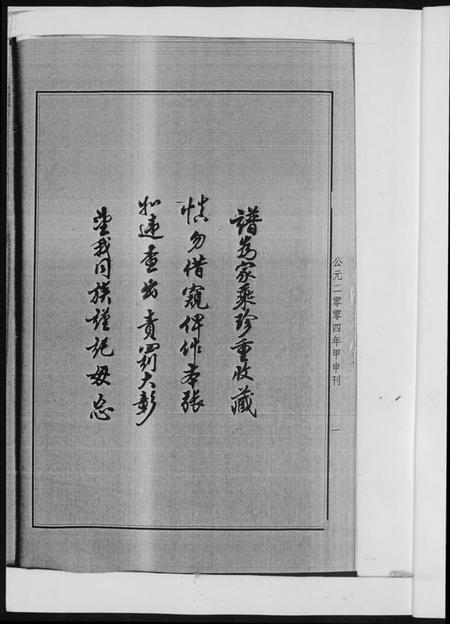 公元二零零四年甲申刊
一
譜為家乘珍重收藏
慎勿借窺俾作本張
如違查出責罰大彰
望我同族謹記毋忘